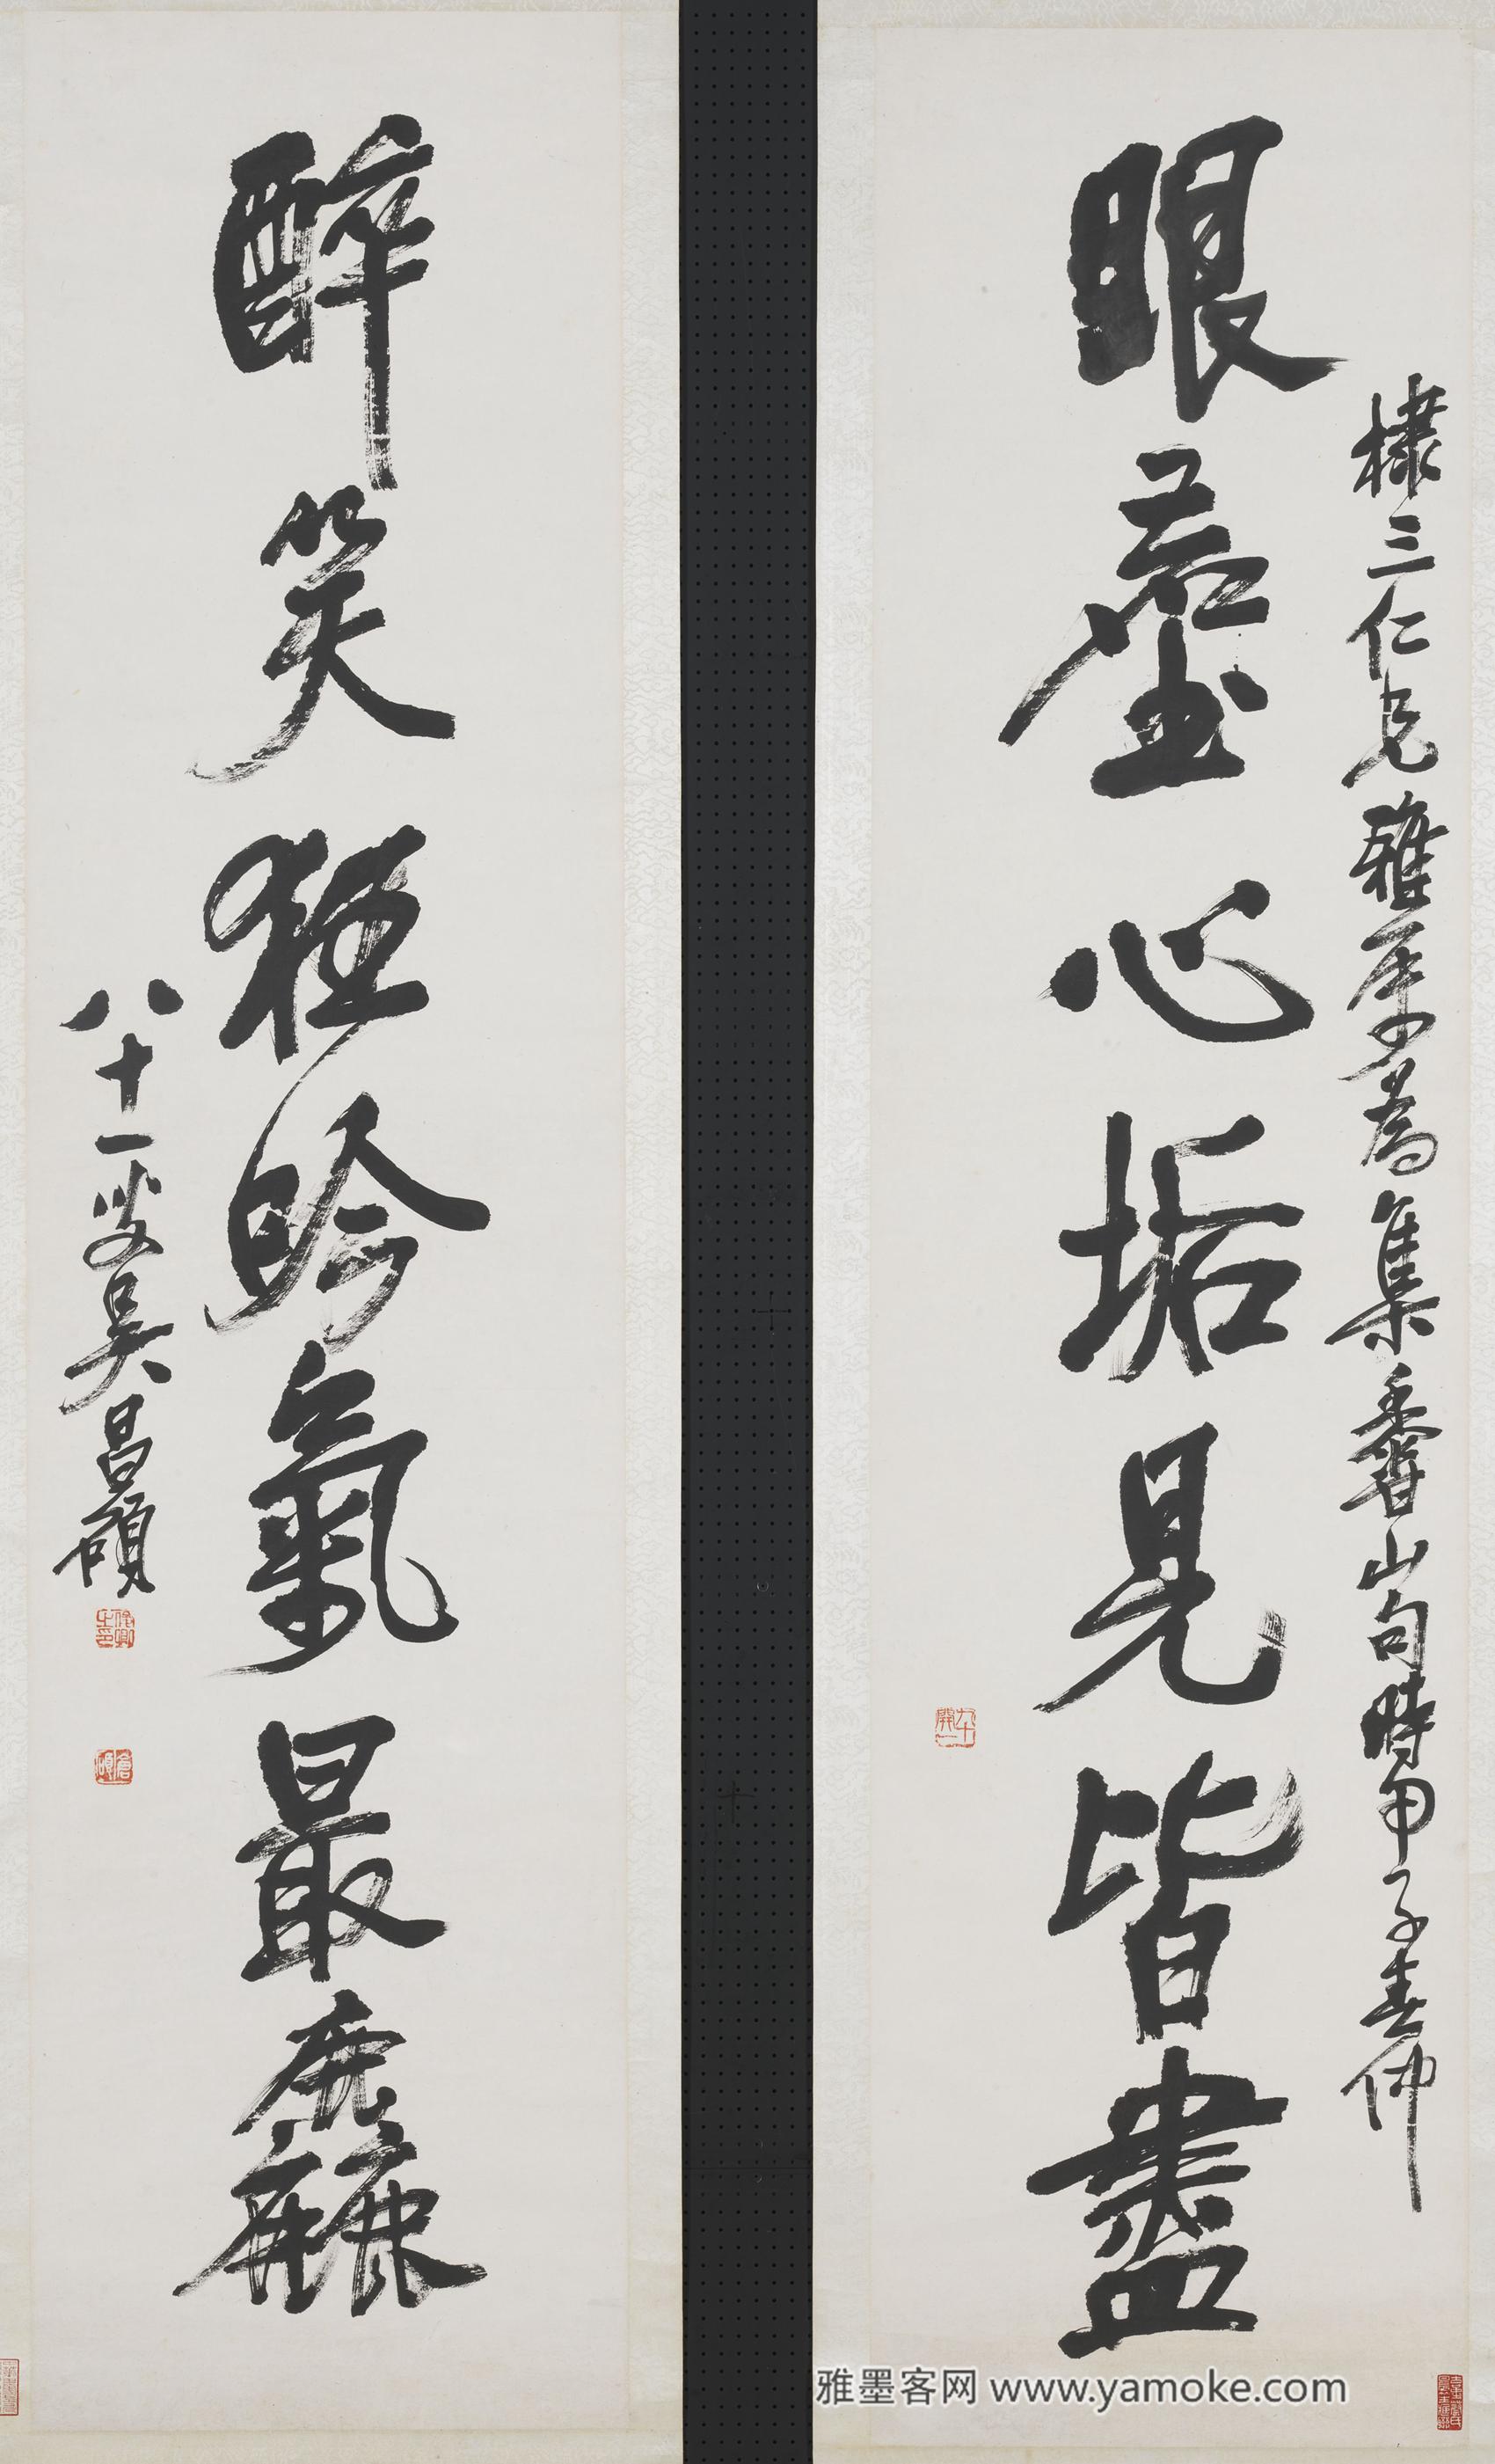 棣三仁兄雅屬為集黍香山句時甲子春仲
眼塵心垢見皆盡
醉笑狂吟氣最麤
八十一叟吳昌碩
雅墨客网 www.yamoke.com